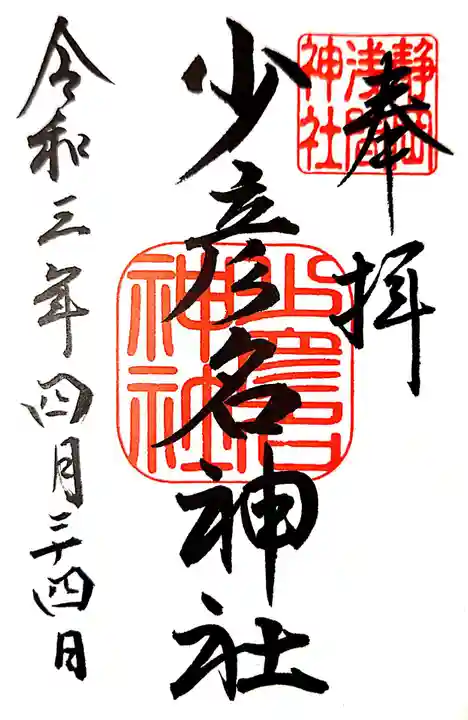 奉拝
静岡
浅間
神社
少彦名神社
少彦名
神社
令和三年四月二十四日